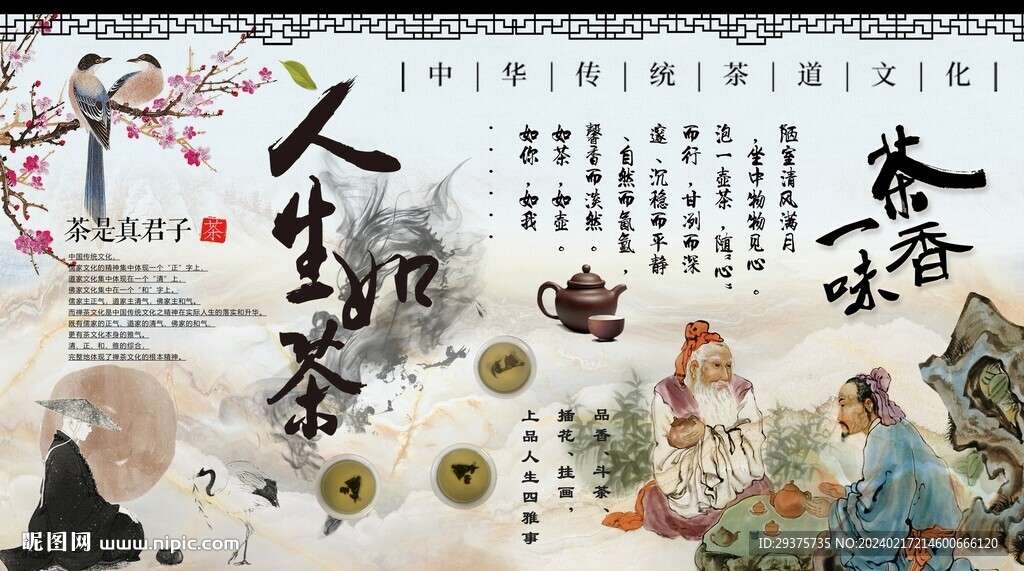 中华传统茶道文化
人生如茶
茶香一味
陋室清风满月
，坐中物物见心。
泡一壶茶，随“心”
而行，甘冽而深
邃、沉稳而平静
、自然而氤氲，
馨香而淡然。
如茶，如壶。
如你，如我
......
茶是真君子
茶
中国传统文化，
儒家文化的精神集中体现一个“正”字上，
道家文化集中体现在一个“清”上，
佛家文化集中在一个“和”字上，
儒家主正气，道家主清气，佛家主和气。
而禅茶文化是中国传统文化之精神在实际人生的落实和升华，
既有儒家的正气、道家的清气、佛家的和气、
更有茶文化本身的雅气。
清、正、和、雅的综合，
完整地体现了禅茶文化的根本精神。
品香、斗茶、
插花、挂画，
上品人生四雅事
昵图网 www.nipic.com
ID:29375735 NO:20240217214600666120